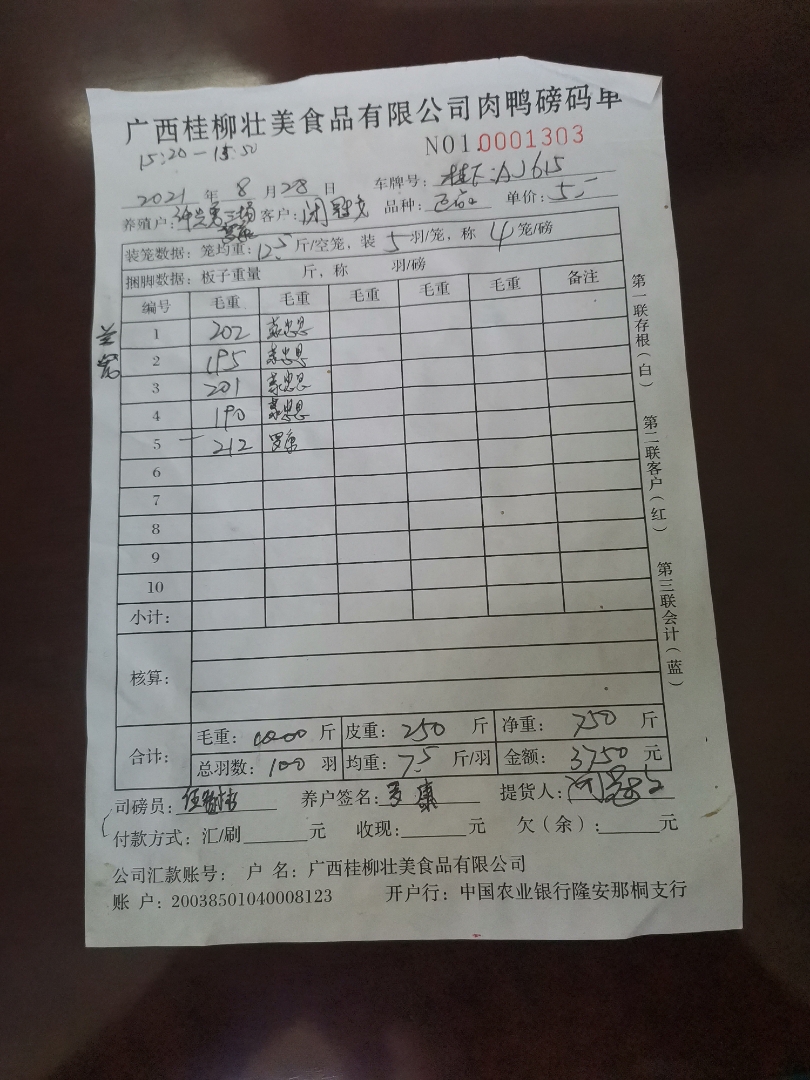 广西桂柳壮美食品有限公司肉鸭磅码单
15:20-15:50
NO1.0001303
2021年8月28日 车牌号:桂F:AJ615
养殖户: 客户:闭冠 品种: 单价:5.-
装笼数据:笼均重:12.5斤/空笼,装5羽/笼,称4笼/磅
捆脚数据:板子重量 斤,称 羽/磅
编号 毛重 毛重 毛重 毛重 毛重 备注
1 202
2 195
3 201
4 190
5 212 罗康
6
7
8
9
10
小计:
核算:
合计: 毛重:1000斤 皮重:250斤 净重:750斤
总羽数:100羽 均重:7.5斤/羽 金额:3750元
司磅员: 养户签名:罗康 提货人:
付款方式:汇/刷 元 收现: 元 欠(余): 元
公司汇款账号: 户 名:广西桂柳壮美食品有限公司
账 户:20038501040008123 开户行:中国农业银行隆安那桐支行
第一联存根(白)
第二联客户(红)
第三联会计(蓝)